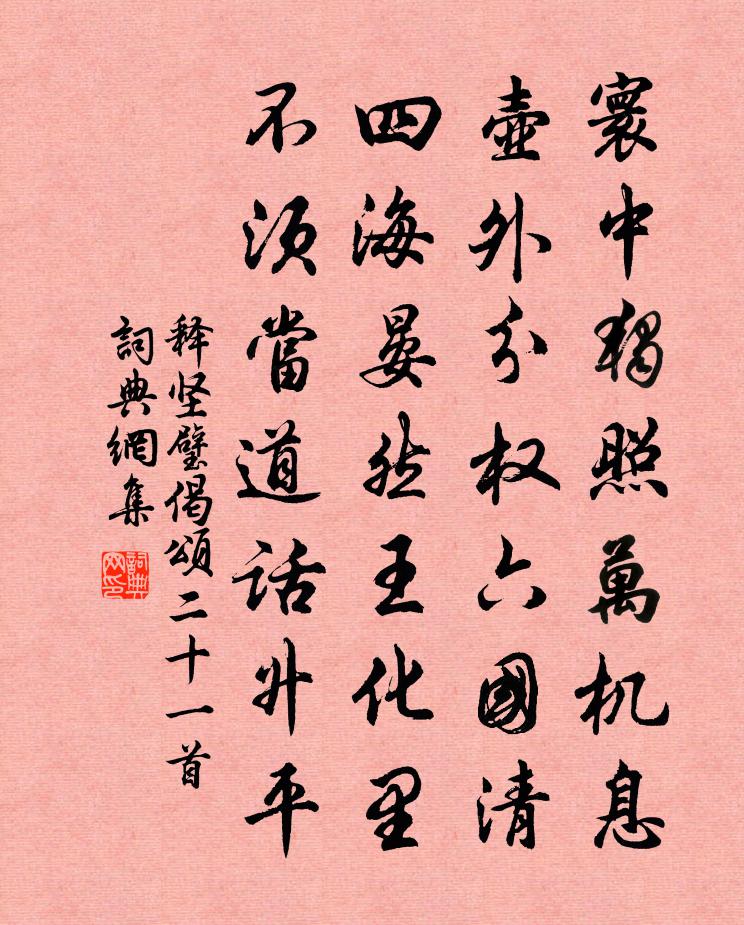 寰中独照萬机息
壺外分权六國清
四海晏然王化里
不须當道话升平
释坚璧偈颂二十一首
詞典網集
詞典网印